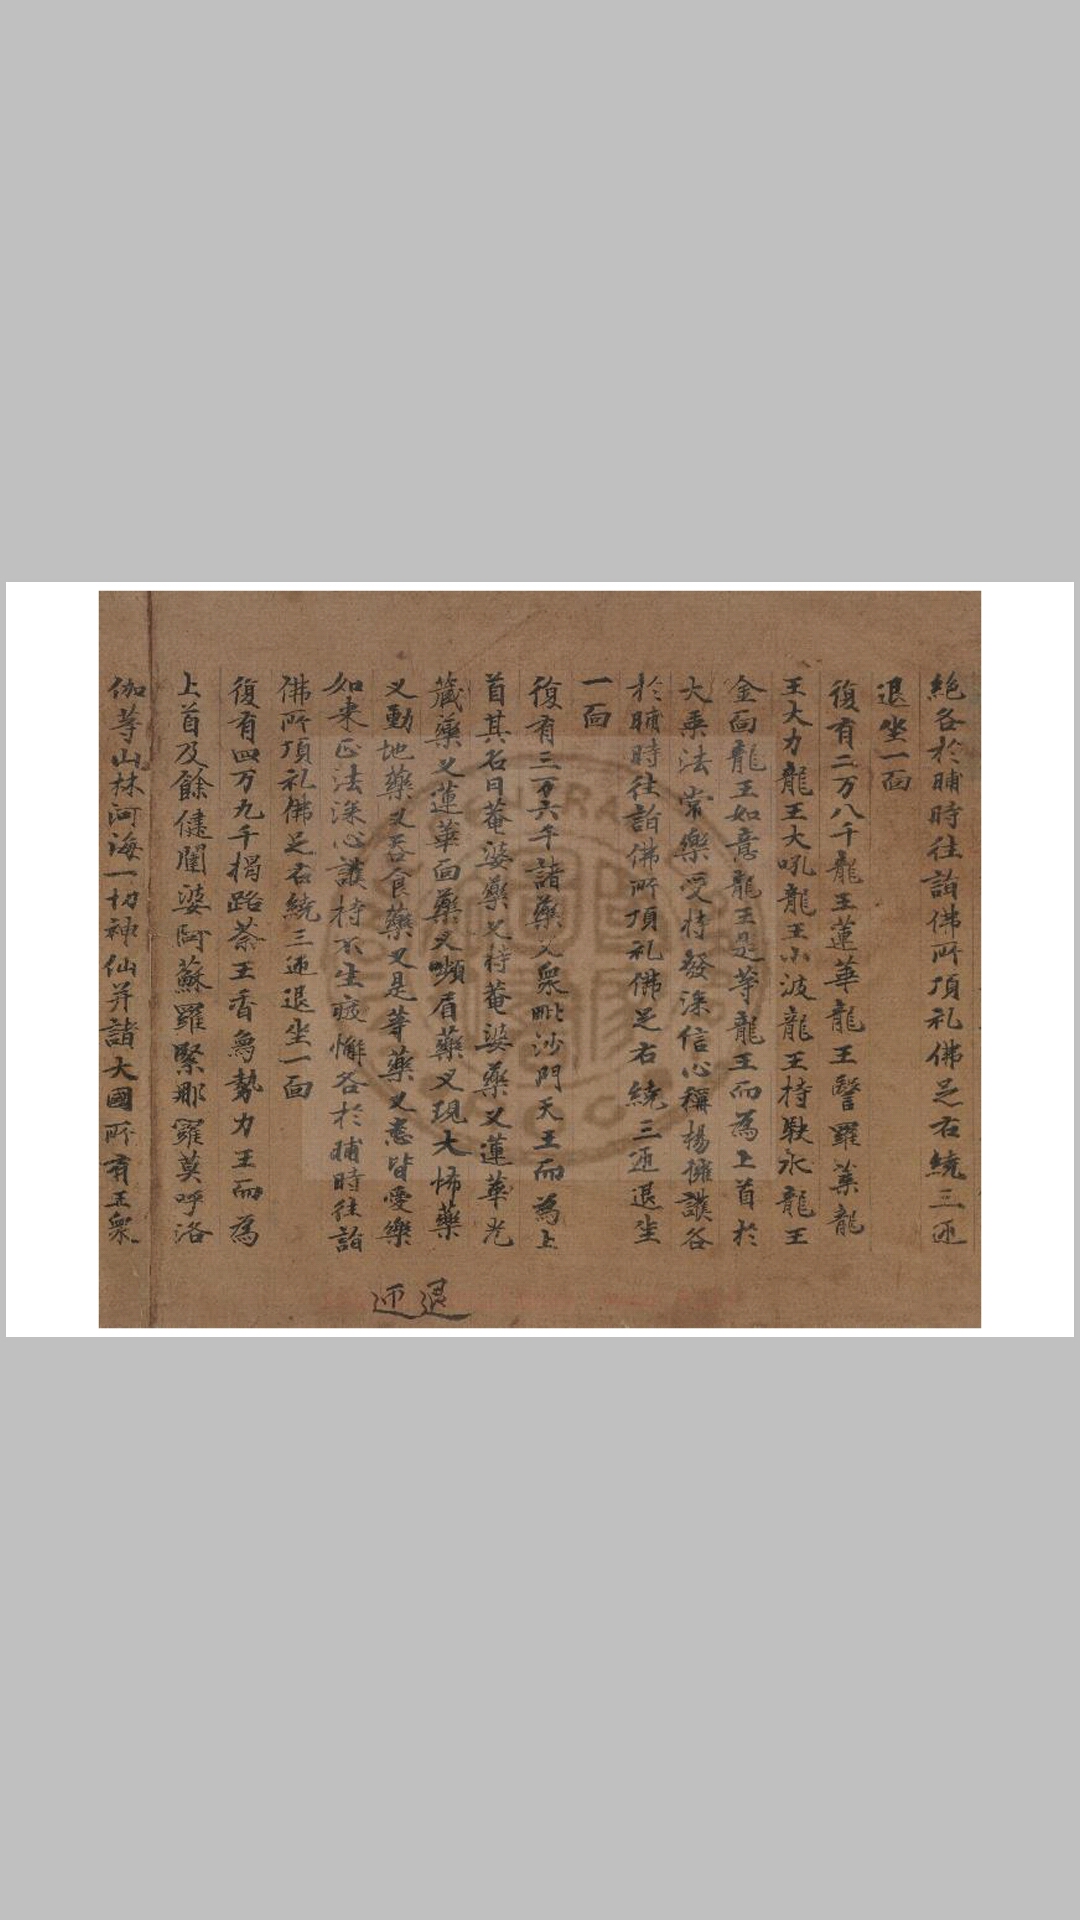 絶各於晡時往詣佛所頂礼佛足右繞三迊
退坐一面
復有二万八千龍王蓮華龍王翳羅葉龍
王大力龍王大吼龍王小波龍王持駃水龍王
金面龍王如意龍王是等龍王而為上首於
大乘法常樂受持發深信心稱揚擁護各
於晡時往詣佛所頂礼佛足右繞三迊退坐
一面
復有三万六千諸藥叉衆毗沙門天王而為上
首其名曰菴婆藥叉持菴婆藥叉蓮華光
藏藥叉蓮華面藥叉嚬眉藥叉現大怖藥
叉動地藥叉吞食藥叉是等藥叉悉皆愛樂
如来正法深心護持不生疲懈各於晡時往詣
佛所頂礼佛足右繞三迊退坐一面
復有四万九千揭路荼王香象勢力王而為
上首及餘健闥婆阿蘇羅緊那羅莫呼洛
伽等山林河海一切神仙并諸大國所有王衆
退
迊